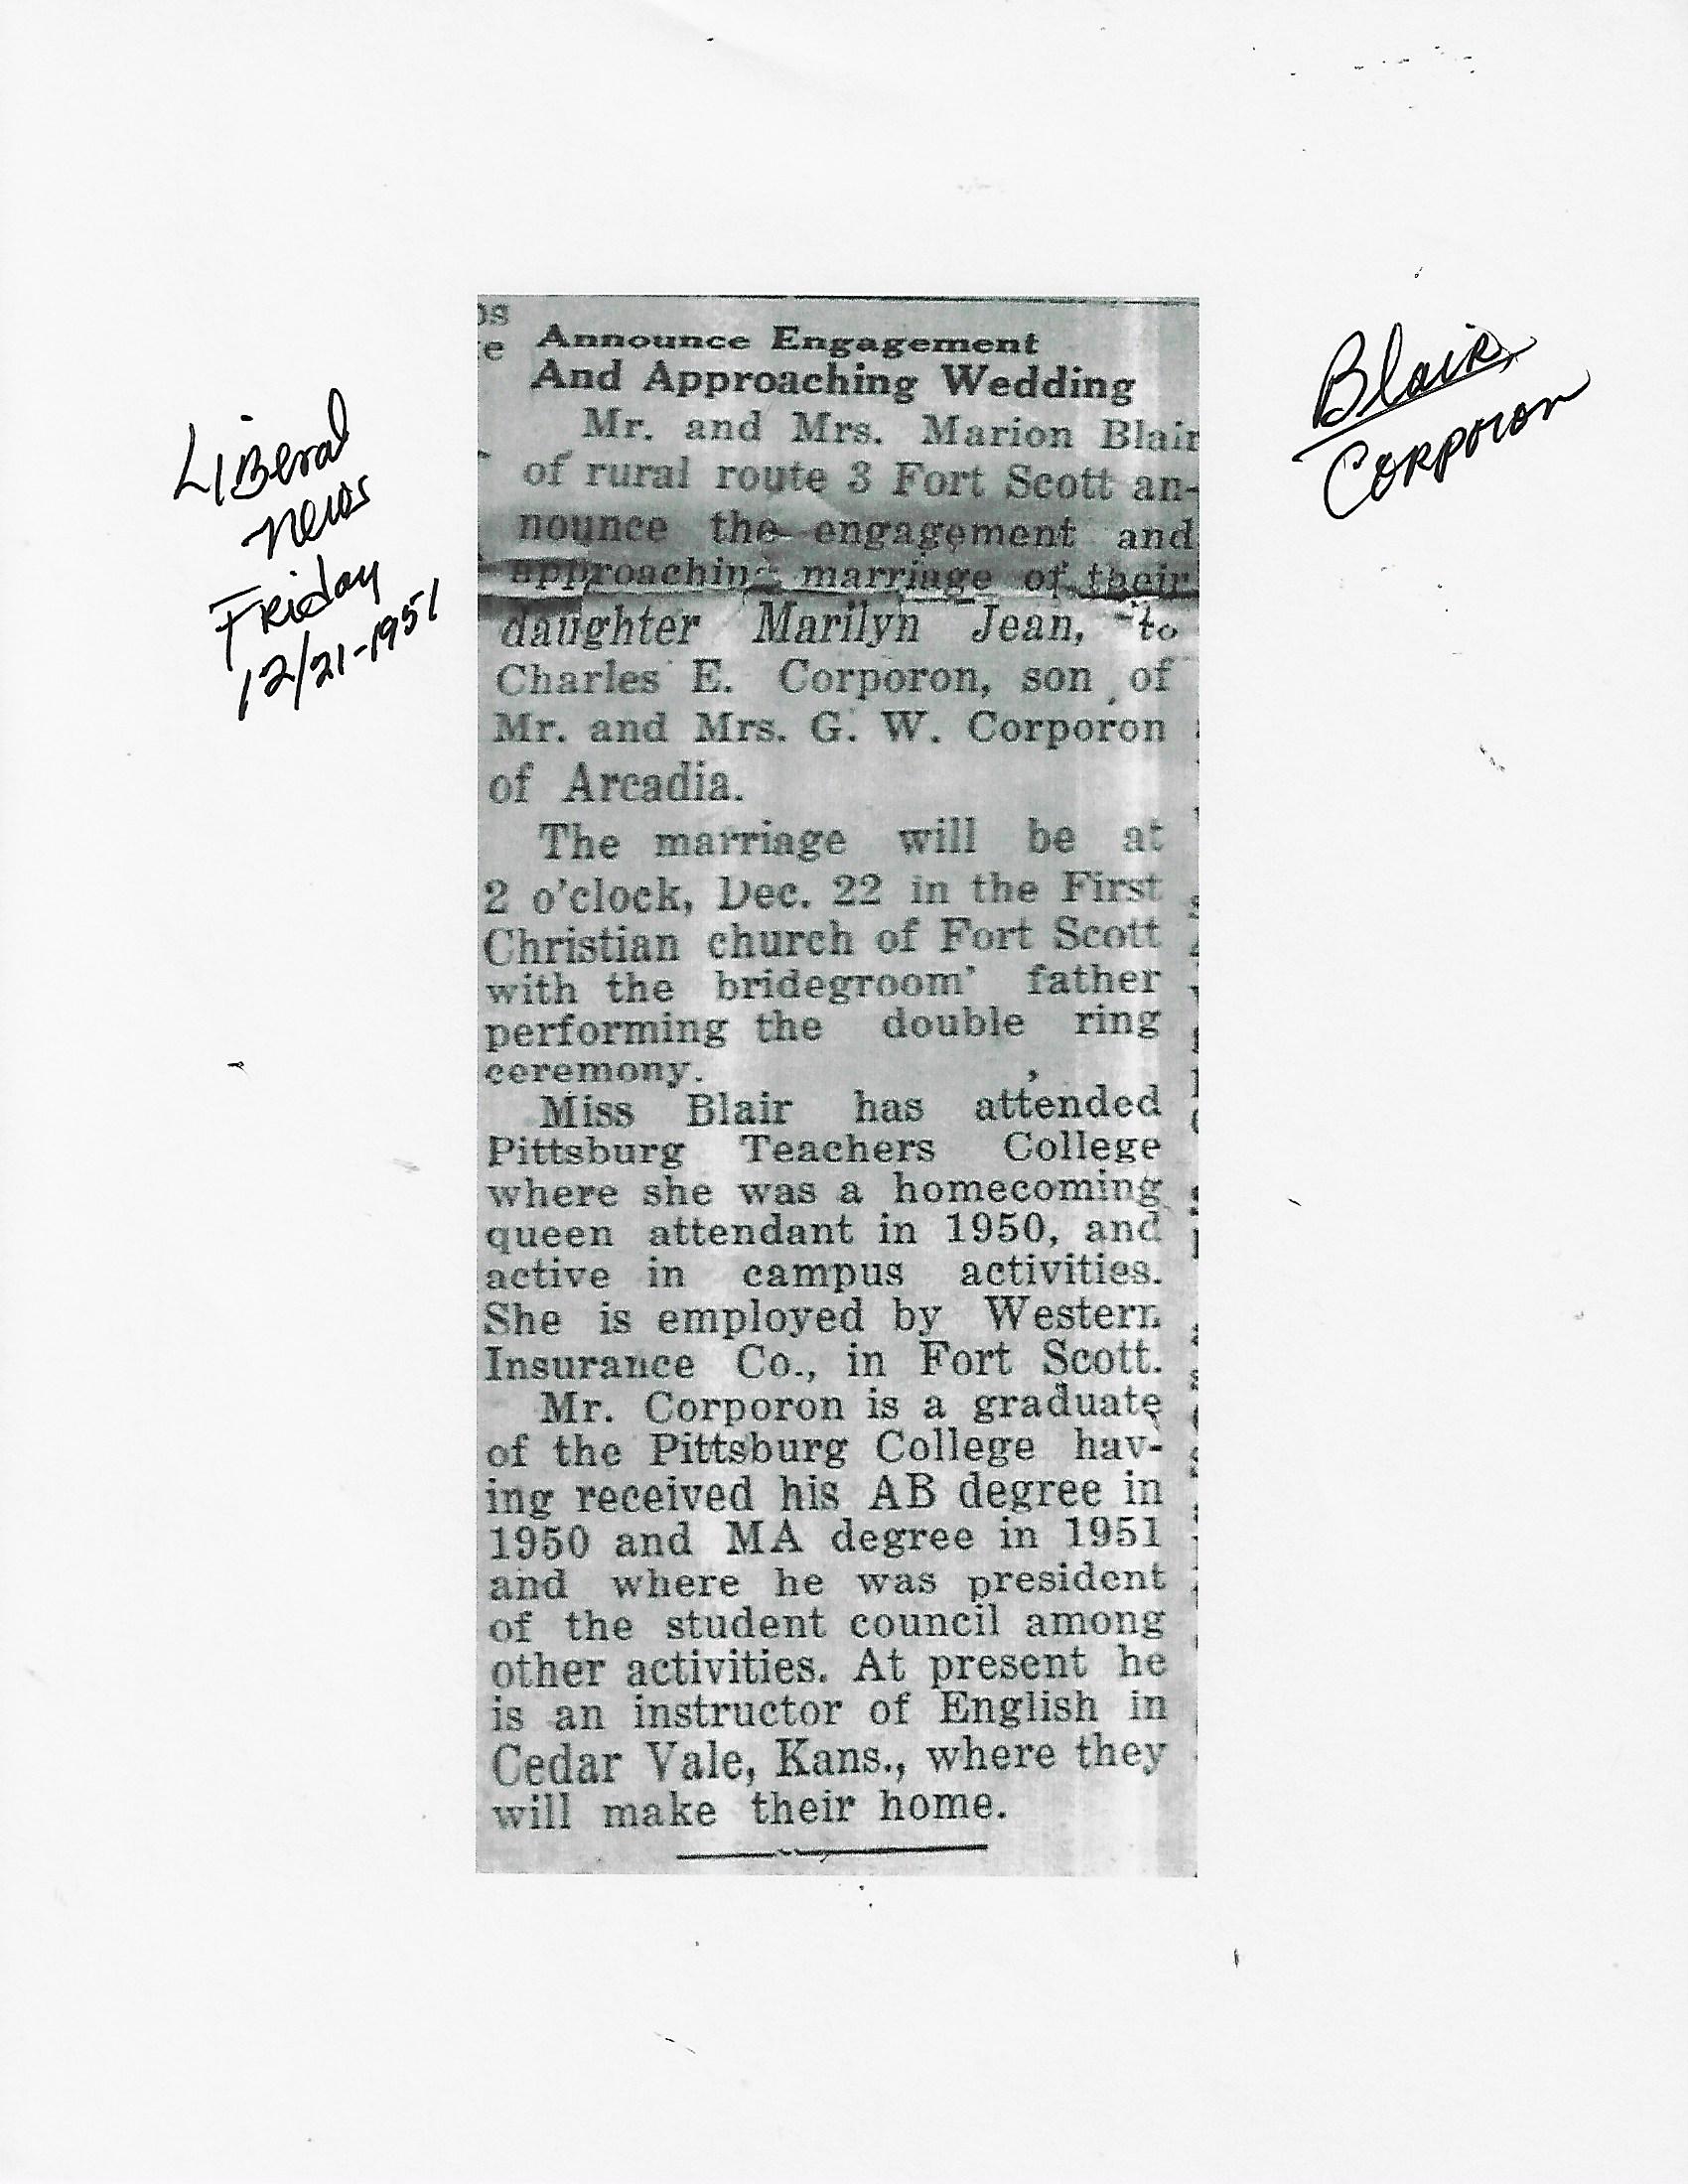 Liberal
News
Friday
12/21-1951
Blair
Corporon
Announce Engagement
And Approaching Wedding
Mr. and Mrs. Marion Blair
of rural route 3 Fort Scott an-
nounce the engagement and
approaching marriage of their
daughter Marilyn Jean, to
Charles E. Corporon, son of
Mr. and Mrs. G. W. Corporon
of Arcadia.
The marriage will be at
2 o'clock, Dec. 22 in the First
Christian church of Fort Scott
with the bridegroom' father
performing the double ring
ceremony.
Miss Blair has attended
Pittsburg Teachers College
where she was a homecoming
queen attendant in 1950, and
active in campus activities.
She is employed by Western
Insurance Co., in Fort Scott.
Mr. Corporon is a graduate
of the Pittsburg College hav-
ing received his AB degree in
1950 and MA degree in 1951
and where he was president
of the student council among
other activities. At present he
is an instructor of English in
Cedar Vale, Kans., where they
will make their home.